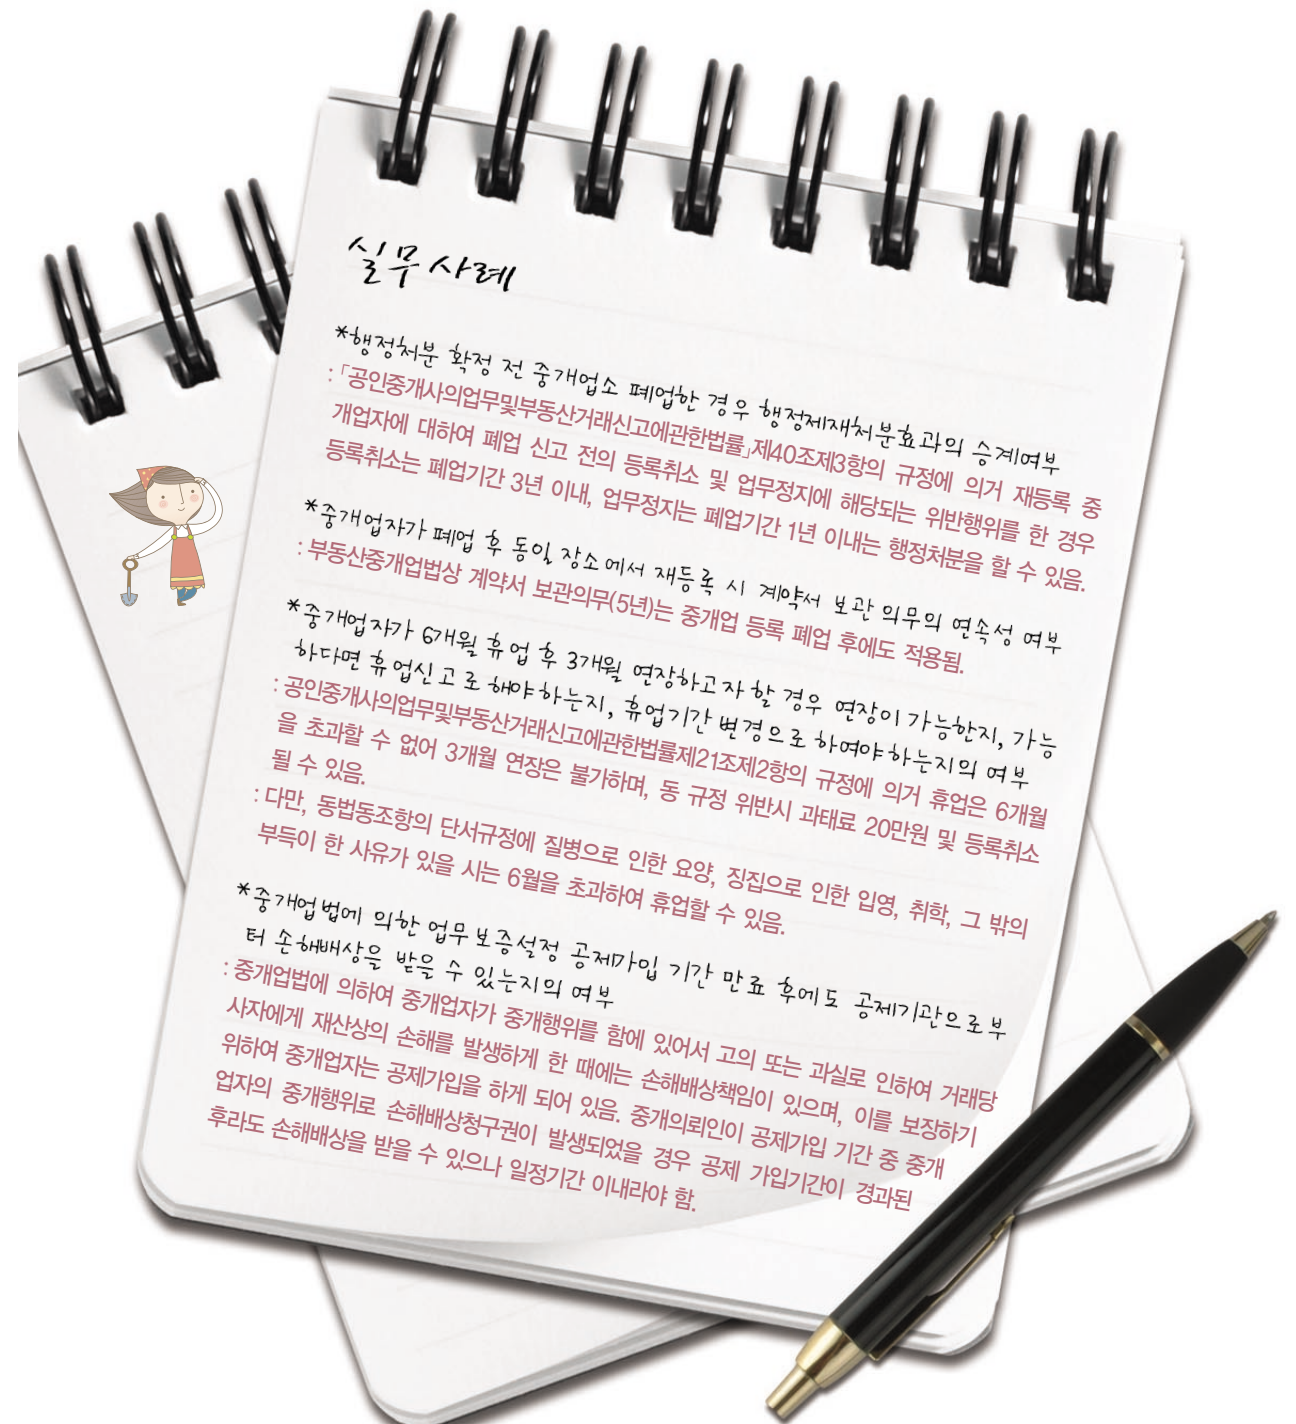 실무 사례
*행정처분 확정 전 중개업소 폐업한 경우 행정제재처분효과의 승계여부
:「공인중개사의업무및부동산거래신고에관한법률」제40조제3항의 규정에 의거 재등록 중
개업자에 대하여 폐업 신고 전의 등록취소 및 업무정지에 해당되는 위반행위를 한 경우
등록취소는 폐업기간 3년 이내, 업무정지는 폐업기간 1년 이내는 행정처분을 할 수 있음.
*중개업자가 폐업 후 동일 장소에서 재등록 시 계약서 보관 의무의 연속성 여부
: 부동산중개업법상 계약서 보관의무(5년)는 중개업 등록 폐업 후에도 적용됨.
*중개업자가 6개월 휴업 후 3개월 연장하고자 할 경우 연장이 가능한지, 가능
하다면 휴업신고로 해야하는지, 휴업기간 변경으로 하여야하는지의 여부
: 공인중개사의업무및부동산거래신고에관한법률제21조제2항의 규정에 의거 휴업은 6개월
을 초과할 수 없어 3개월 연장은 불가하며, 동 규정 위반시 과태료 20만원 및 등록취소
될 수 있음.
: 다만, 동법동조항의 단서규정에 질병으로 인한 요양, 징집으로 인한 입영, 취학, 그 밖의
부득이 한 사유가 있을 시는 6월을 초과하여 휴업할 수 있음.
*중개업법에 의한 업무보증설정 공제가입 기간 만료 후에도 공제기관으로부
터 손해배상을 받을 수 있는지의 여부
: 중개업법에 의하여 중개업자가 중개행위를 함에 있어서 고의 또는 과실로 인하여 거래당
사자에게 재산상의 손해를 발생하게 한 때에는 손해배상책임이 있으며, 이를 보장하기
위하여 중개업자는 공제가입을 하게 되어 있음. 중개의뢰인이 공제가입 기간 중 중개
업자의 중개행위로 손해배상청구권이 발생되었을 경우 공제 가입기간이 경과된
후라도 손해배상을 받을 수 있으나 일정기간 이내라야 함.